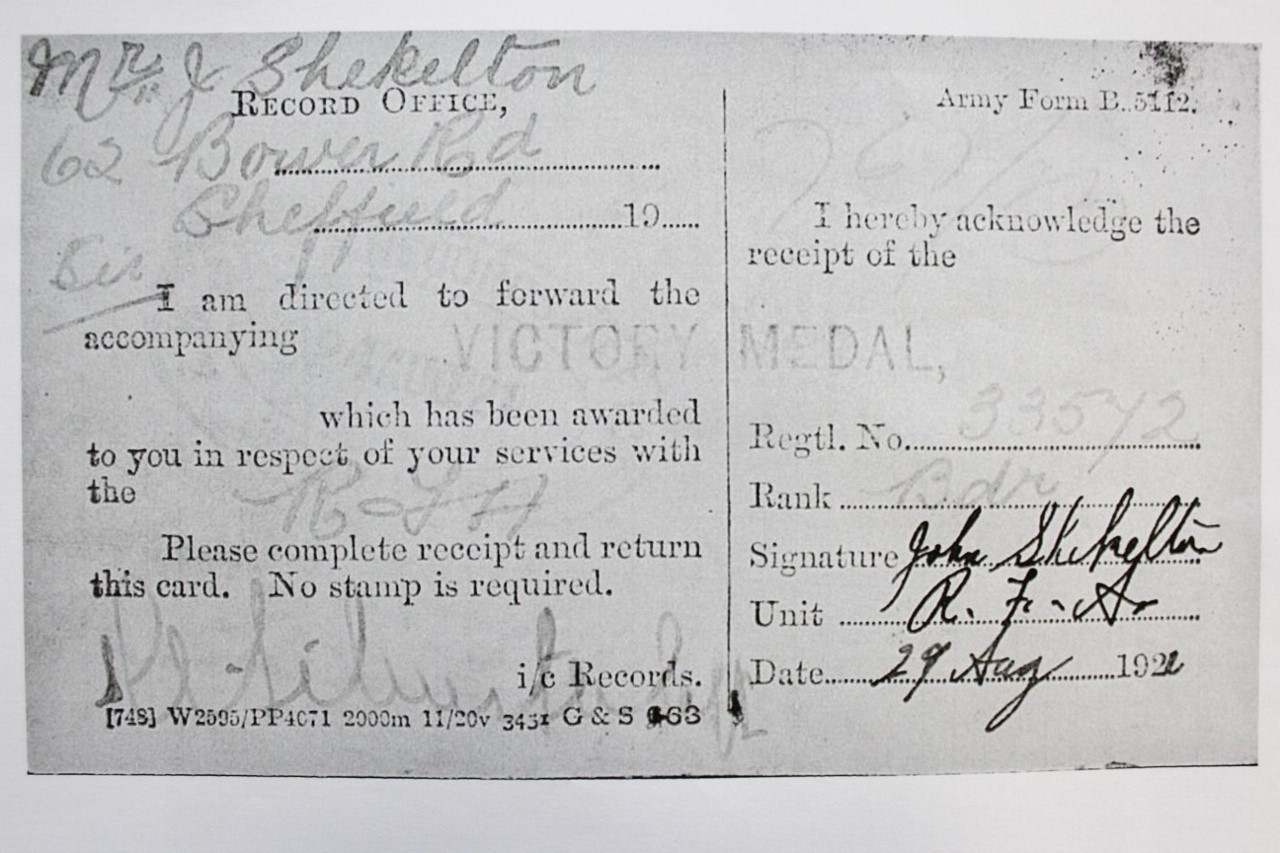 Mr. J Shekelton
RECORD OFFICE,
62 Bower Rd
Sheffield 19
Sir
I am directed to forward the
accompanying
VICTORY MEDAL,
which has been awarded
to you in respect of your services with
the R-F-A
Please complete receipt and return
this card. No stamp is required.
i/c Records.
[748] W2595/PP4071 2000m 11/20v 3451 G & S
Army Form B. 5112.
I hereby acknowledge the
receipt of the
Regtl. No. 33572
Rank Bdr
Signature John Shekelton
Unit R. F. A.
Date 29 Aug 1921